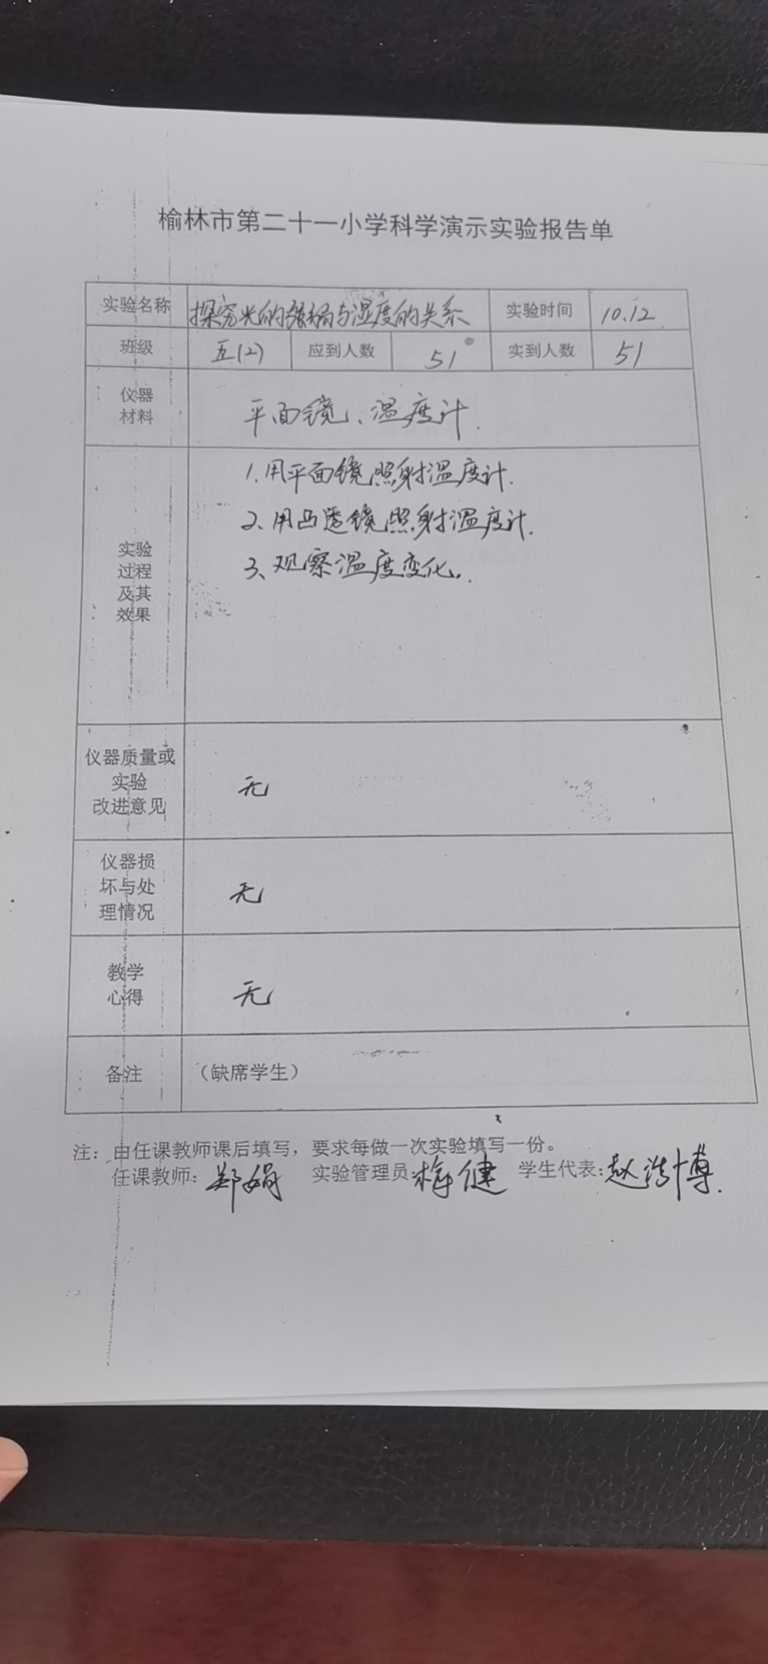 榆林市第二十一小学科学演示实验报告单
实验名称 探究光的强弱与温度的关系 实验时间 10.12
班级 五(2) 应到人数 51 实到人数 51
仪器
材料
平面镜、温度计.
实验
过程
及其
效果
1.用平面镜照射温度计.
2.用凸透镜照射温度计.
3、观察温度变化.
仪器质量或
实验
改进意见
无
仪器损
坏与处
理情况
无
教学
心得
无
备注 （缺席学生）
注：由任课教师课后填写，要求每做一次实验填写一份。
任课教师: 郑娟 实验管理员 健 学生代表:赵浩博